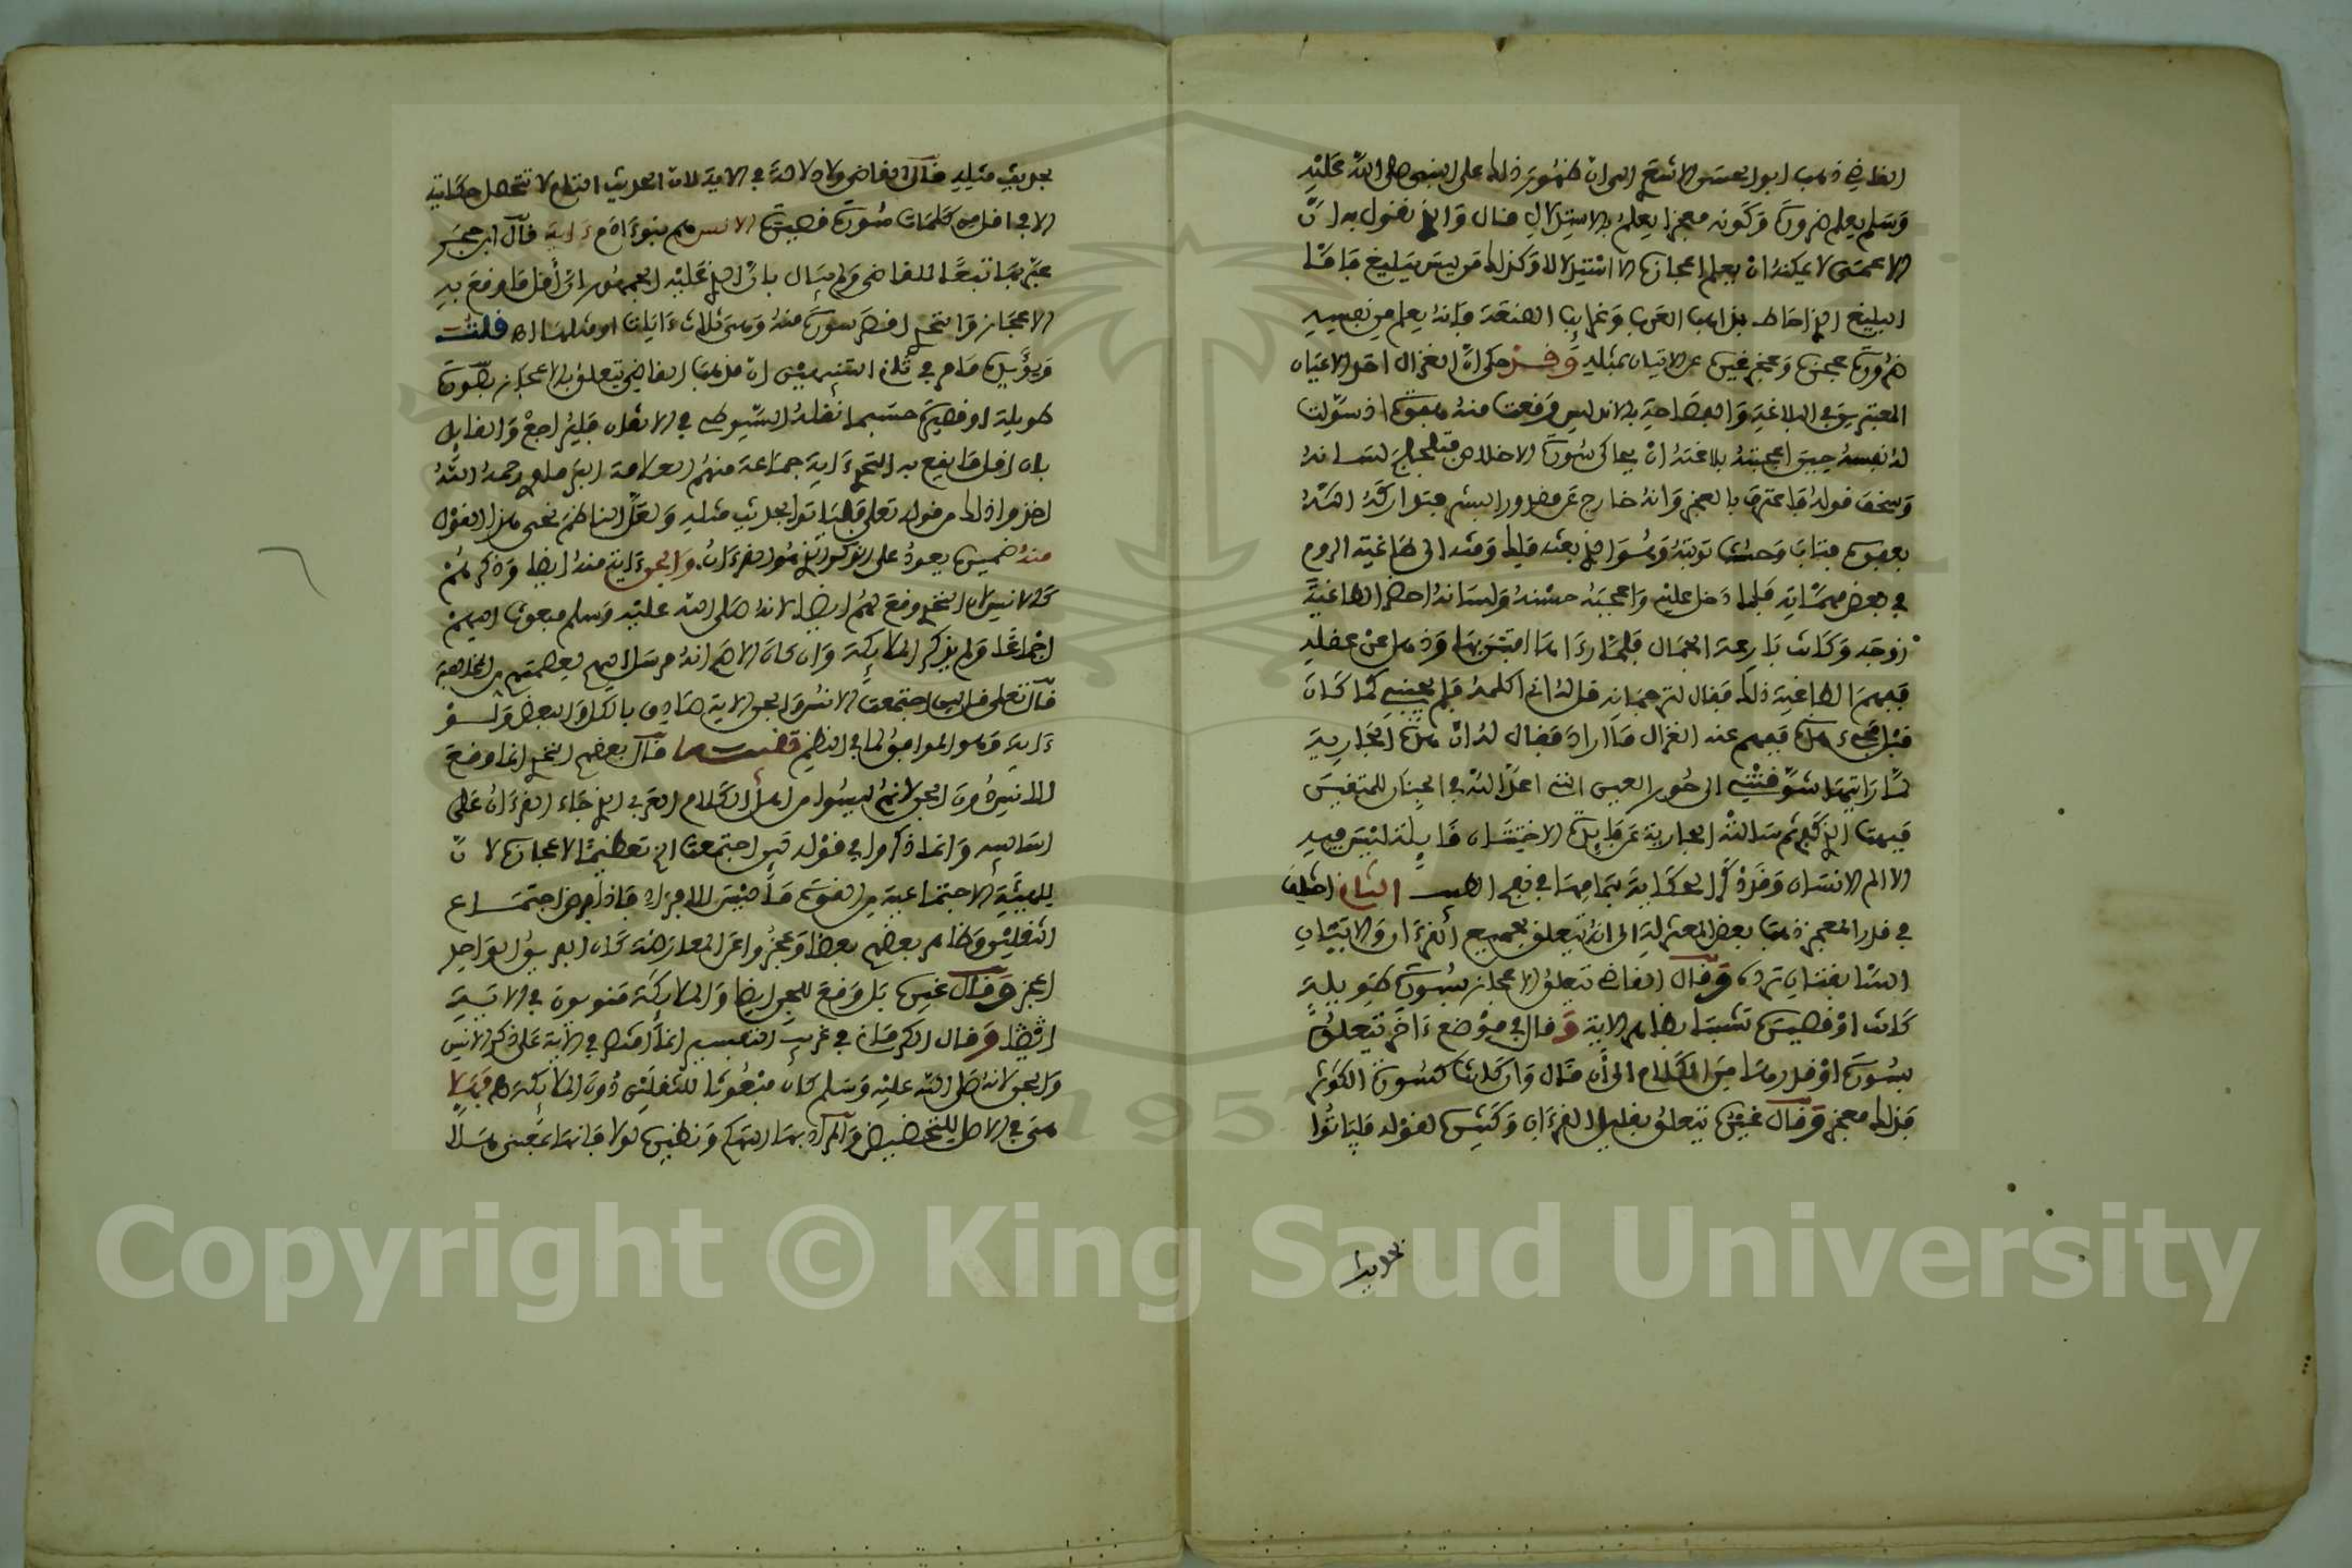 القاضي ذهب ابو الحسن الاشعري الى ان ظهور ذلك على النبي صلى الله عليه
وسلم يعلم ضرورة وكونه معجزا يعلم بالاستدلال قال والذي نقوله ان
الاعجمي لا يمكنه ان يعلم اعجازه الا استدلالا وكذلك من ليس ببليغ فاما
البليغ الذي احاط بمذاهب العرب وغرايب الصنعة فانه يعلم من نفسه
ضرورة عجزه وعجز غيره عن الاتيان بمثله وقد حكى ان الغزال احد الاعيان
المعتبرين في البلاغة والفصاحة بالاندلس وقعت منه هفوة اذ سولت
له نفسه حين اعجبته بلاغته ان يحاكي سورة الاخلاص فتلجلج لسانه
وسخف قوله فاعترف بالعجز وانه خارج عن مقدور البشر فتداركه الله
بعفوه فتاب وحسنت توبته وهو الذي بعثه ملك وقته الى طاغية الروم
في بعض مهماته فلما دخل عليه واعجبه حسنه ولسانه احضر الطاغية
زوجه وكانت بارعة الجمال فلما رءاها افتتن بها وذهل عن عقله
ففهم الطاغية ذلك فقال لترجمانه قل له اني اكلمه فلم يجبني كما كان
قبل مجيء هذه ففهم عنه الغزال ما اراد فقال له ان هذه الجارية
لما رايتها شوقتني الى حور العين التي اعد الله في الجنان للمتقين
فبهت الذي كفر ثم سالته الجارية عن فايدة الاختتان قايلة ليس فيه
الا الم الانسان وقد ذكر الحكاية بتمامها في نفح الطيب الثاني اختلف
في قدر المعجز ذهب بعض المعتزلة الى انه يتعلق بجميع القرءان والايتان
السابقتان ترده وقال القاضي يتعلق الاعجاز بسورة طويلة
كانت او قصيرة تشبثا بظاهر الاية وقال في موضع ءاخر يتعلق
بسورة او قدرها من الكلام الى ان قال وان كانت كسورة الكوثر
فذلك معجز وقال غيره يتعلق بقليل القرءان وكثيره لقوله فلياتوا
بحديث مثله قال القاضي ولا دلالة في الاية لان الحديث التام لا تتحصل حكايته
الا في اقل من كلمات سورة قصيرة الانس هم بنو ءادم ءاية قال ابن حجر
عبر بها تبعا للقاضي ولم يبال بان الذي عليه الجمهور ان اقل ما وقع به
الاعجاز والتحدي اقصر سورة منه وهي ثلاث ءايات او مثلها اه قلت
ويؤيده ما مر في ثاني التنبيهين ان مذهب القاضي تعلق الاعجاز بسورة
طويلة او قصيرة حسبما نقله السيوطي في الاتقان فليراجع والقايل
بان اقل ما يقع به التحدي ءاية جماعة منهم العلامة البرماوي رحمه الله
اخذوا ذلك من قوله تعلى فلياتوا بحديث مثله ولعل الناظم نحى هذا القول
منه ضميره يعود على المذكور الذي هو القرءان والجن ءاية منه ايضا وذكرهم
كالانس لان التحدي وقع لهم ايضا لانه صلى الله عليه وسلم مبعوث اليهم
اجماعا ولم يذكر الملايكة وان كان الاصح انه مرسل اليهم لعصمتهم من المخالفة
قال تعلى قل لين اجتمعت الانس والجن الاية صادق بالكل والبعض ولو
ءاية وهو الموافق لما في النظم قنبيه قال بعضهم التحدي انما وقع
للانس دون الجن لانهم ليسوا من اهل الكلام العربي الذي جاء القرءان على
اساليبه وانما ذكروا في قوله لين اجتمعت الخ تعظيما لاعجازه لان
للهيئة الاجتماعية من القوة ما ليس للافراد فاذا فرض اجتماع
الثقلين وظاهر بعضهم بعضا وعجزوا عن المعارضة كان الفريق الواحد
اعجز وقال غيره بل وقع للجن ايضا والملايكة منويون في الاية
ايضا وقال الكرماني في غريب التفسير انما اقتصر في الاية على ذكر الانس
والجن لانه صلى الله عليه وسلم كان مبعوثا للثقلين دون الملايكة اه فهلا
هي في الاصل للتحضيض والمراد بها التهكم ونظيره لولا فانها بمعنى هلا